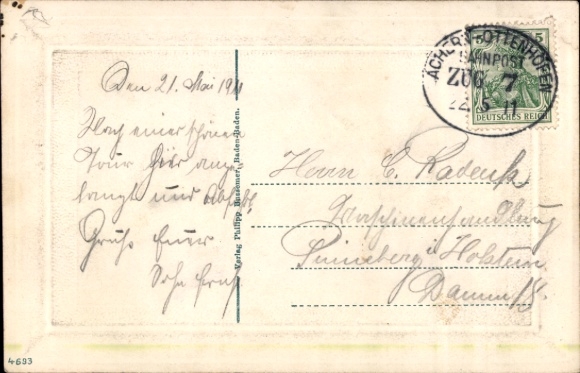 Den 21. Mai 1911
Nach einer schönen
Tour hier ange-
langt und
Gruß Euer
Sohn Ernst
Verlag Philipp Bussemer, Baden-Baden.
ACHERN-OTTENHÖFEN
BAHNPOST
ZUG 7
22 5 11
5
DEUTSCHES REICH
Herrn C. Radenk
Maschinenhandlung
Pinneberg i Holstein
Damm
4693